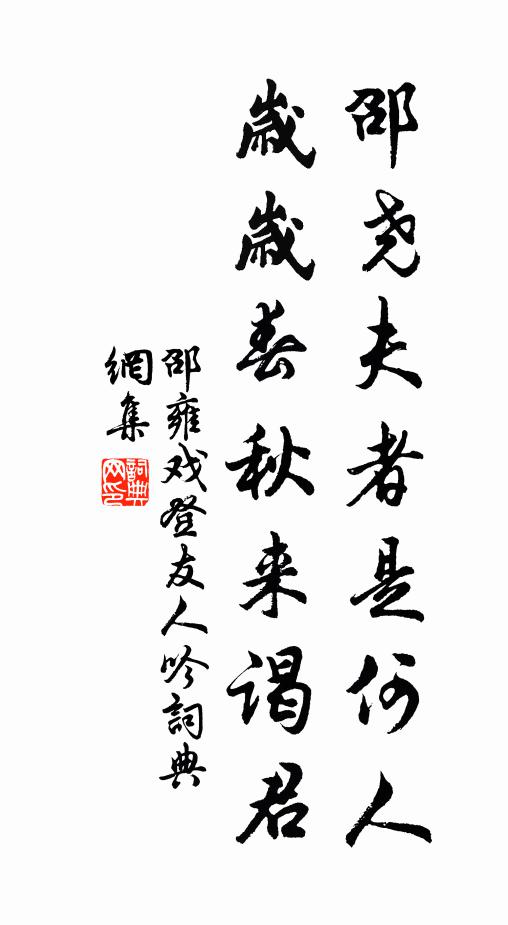 邵尧夫者是何人
歳歳春秋来谒君
邵雍戏登友人吟詞典
網集
詞典網印